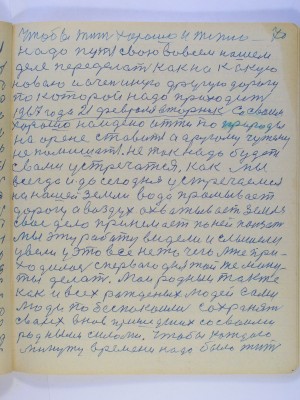 Чтобы жить хорошо и тепло
надо путь свою во всем нашем
деле переделать как на какую
новою и очень иную другую дорогу
по которой надо приходить
1967 года 21 февраля вторник
хорошо найдено итти по природе
на арене ставить а другому чужому
не помешать. Не так надо будет
с вами встречатся, как мы
всегда и до сегодня встречаемся
на нашей земли вода промывает
дорогу а воздух охватывает землю
свое дело принимает по ней
мы эту работу видели и слышали
увели у это все не то чего мне при
ходилося с первого дня той же мину
ты делать. Мои родные также
как и всех рожденных людей сами
люди побеспокоили сохранять
своих вновь пришедших со своими
родными силами. Чтобы каждого
минуту времени надо было жить